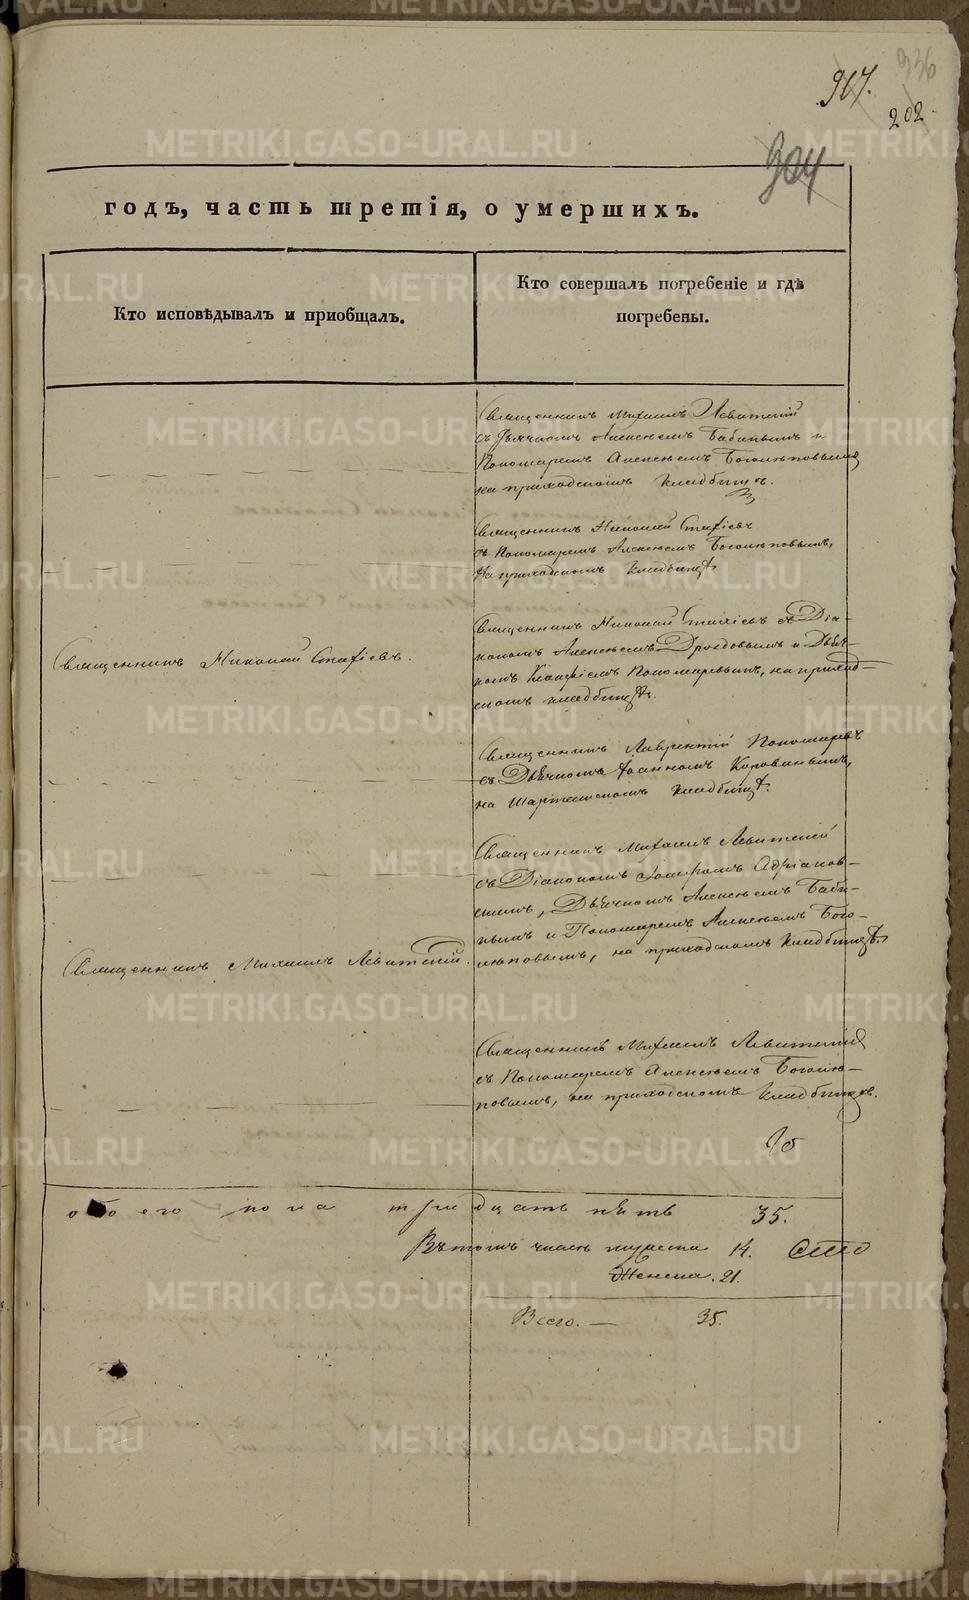 917.
936
202.
304
годъ, часть третія, о умершихъ.
Кто исповѣдывалъ и пріобщалъ.
Кто совершалъ погребеніе и гдѣ
погребены.
Священникъ Михаилъ Левитскій
съ Дьячкомъ Алексѣемъ Бабинымъ и
Пономаремъ Алексѣемъ Боголѣповымъ,
на приходскомъ кладбищѣ.
Священникъ Николай
съ Пономаремъ Алексѣемъ Боголѣповымъ,
на приходскомъ кладбищѣ.
Священникъ Николай
Священникъ Николай съ Діа-
кономъ Алексѣемъ Дроздовымъ и Дьяч-
комъ Пономаревымъ, на приход-
скомъ кладбищѣ.
Священникъ Лаврентій Пономаревъ
съ Дьячкомъ Іоанномъ Коровинымъ,
на Шарташскомъ кладбищѣ.
Священникъ Михаилъ Левитскій
съ Діакономъ Адріанов-
скимъ, Дьячкомъ Алексѣемъ Баби-
нымъ и Пономаремъ Алексѣемъ Бого-
лѣповымъ, на приходскомъ кладбищѣ.
Священникъ Михаилъ Левитскій.
Священникъ Михаилъ Левитскій
съ Пономаремъ Алексѣемъ Боголѣ-
повымъ, на приходскомъ кладбищѣ.
обоего пола тридцать пять 35.
Въ томъ числѣ мужеска 14.
Женска. 21.
Всего. — 35.
METRIKI.GASO-URAL.RU